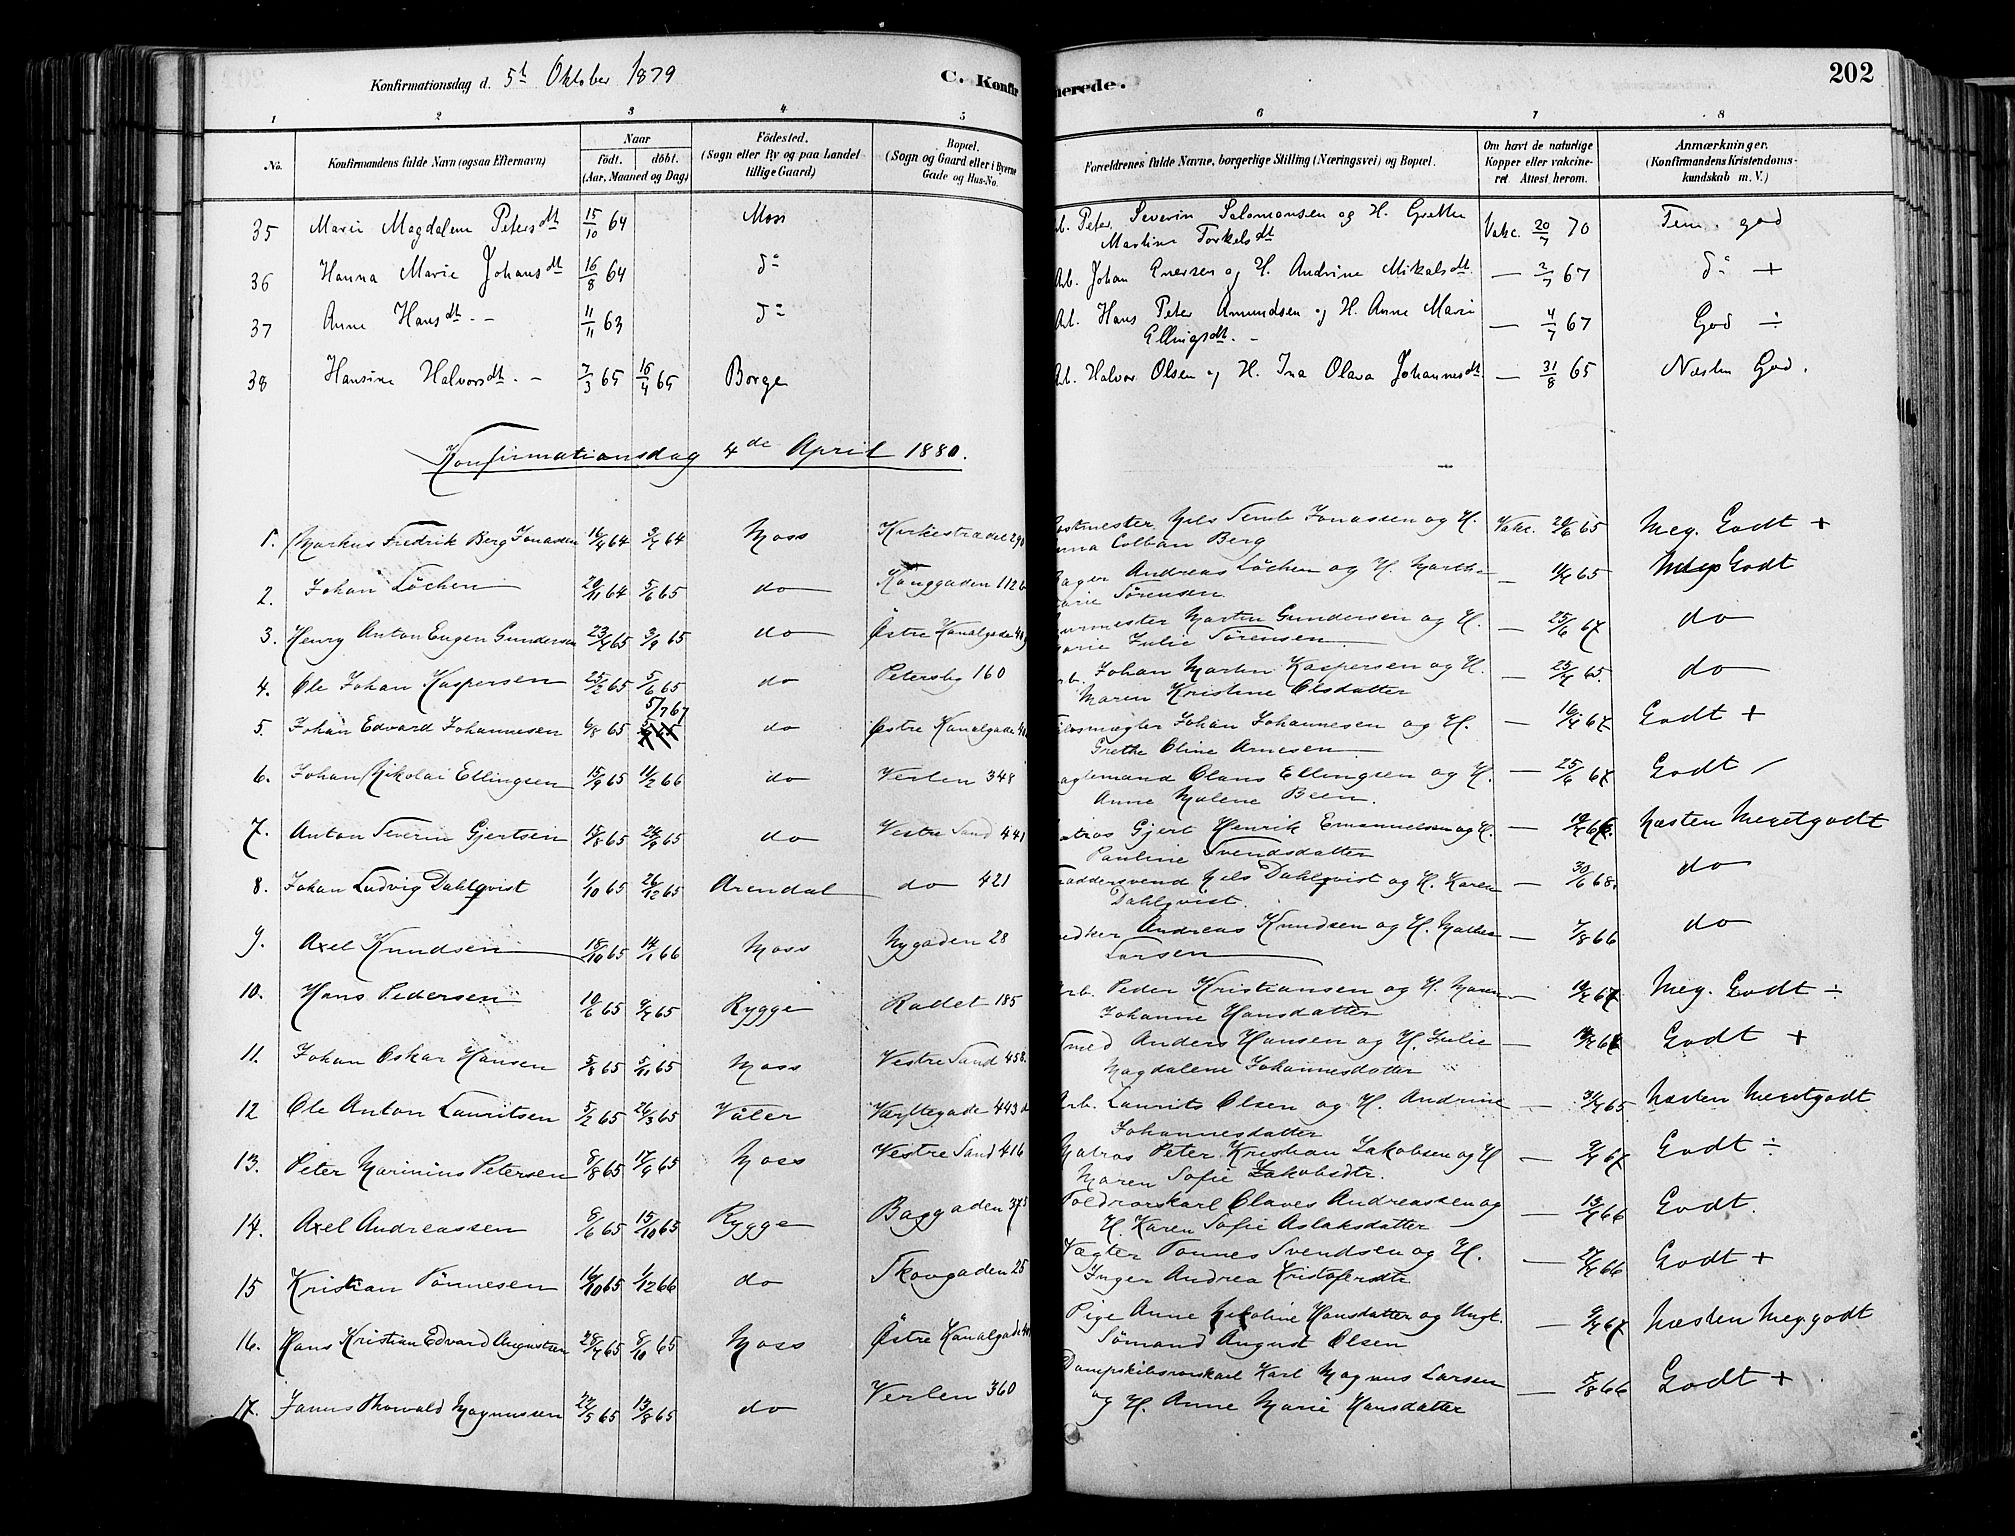 Konfirmationsdag d. 5te Oktober 1879
C. Konfir
merede.
202
1 2 3 4 5 6 7 8
No.
Konfirmandens fulde Navn (ogsaa Efternavn)
Naar
födt. döbt.
(Aar, Maaned og Dag)
Födested.
(Sogn eller By og paa Landet
tillige Gaard)
Bopæl.
(Sogn og Gaard eller i Byerne
Gade og Hus-No.
Forældrenes fulde Navne, borgerlige Stilling (Næringsvei) og Bopæl.
Om havt de naturlige
Kopper eller vakcine-
ret. Attest herom.
Anmærkninger.
(Konfirmandens Kristendoms-
kundskab m. V.)
35 Marie Magdalene Petersdt 15/10 64 Moss Arb. Peter Severin Salomonsen og H. Grethe Vakc. 20/7 70 Tem. god
Martine Torkelsdt
36 Hanna Marie Johansdt 16/8 64 do Arb. Johan Enersen og H. Andrine Mikalsdt — 2/7 67 do +
37 Anne Hansdt. - 11/11 63 do Arb. Hans Peter Amundsen og H. Anne Marie — 4/7 67 God ÷
Ellingsdt. -
38 Hansine Halvorsdt. - 7/3 65 16/4 65 Borge Arb. Halvor Olsen og H. Ina Olava Johannesdt — 31/8 65 Næsten God.
Konfirmationsdag 4de April 1880.
1. Markus Fredrik Berg Jonassen 16/4 64 3/7 64 Moss Kirkestrædet 290 Postmester Nils Semb Jonassen og H. Vakc. 20/6 65 Meg. Godt +
Anna Colban Berg
2. Johan Löchen 20/11 64 5/6 65 do Konggaden 112 b Bager Andreas Löchen og H. Marthe — 14/6 65 Meg Godt
Marie Sørensen
3. Henry Anton Eugen Gundersen 23/4 65 3/9 65 do Östre Kanalgade Murmester Martin Gundersen og H. — 25/6 67 do
Marie Julie Sørensen
4. Ole Johan Kaspersen 25/2 65 5/6 65 do Petersby 160 Arb. Johan Martin Kaspersen og H. — 25/7 65. do
Maren Kristine Olsdatter
5/7 67
5. Johan Edvard Johannesen 6/8 65 do Östre Kanalgade Johan Johannesen og H. — 16/7 67 Godt +
Grethe Oline Arnesen
6. Johan Nikolai Ellingsen 15/9 65 11/2 66 do Verlen 348 Olaus Ellingsen og H. — 25/6 67 Godt /
Anne Malene Been.
7. Anton Severin Gjertsen 18/8 65 24/9 65 do Vestre Sand 441 Matros Gjert Henrik Emanuelsen og H. — Næsten Megetgodt
Pauline Svendsdatter
8. Johan Ludvig Dahlqvist 1/10 65 26/12 65 Arendal do 421 Nils Dahlqvist og H. Karen — 30/6 68. do
Dahlqvist.
9. Axel Knudsen 18/10 65 14/1 66 Moss Nygaden 28 Andreas Knudsen og H. Mathea — 7/8 66 do
Larsen
10. Hans Pedersen 10/6 65 9/7 65 Rygge Rådet 185 Arb. Peder Kristiansen og H. Maren — 10/7 67 Meg. Godt ÷
Johanne Hansdatter
11. Johan Oskar Hansen 5/8 65 5/11 65 Moss Vestre Sand 458. Smed Anders Hansen og H. Julie — Godt +
Magdalene Johannesdatter
12 Ole Anton Lauritsen 5/2 65 26/3 65 Våler Værftegade 443 Arb. Laurits Olsen og H. Andrine — 31/7 65 Næsten Megetgodt
Johannesdatter
13. Peter Marinius Petersen 8/8 65 17/9 65 Moss Vestre Sand 416 Matros Peter Kristian Jakobsen og H — 9/7 67 Godt ÷
Maren Sofie Jakobsdtr.
14. Axel Andreassen 8/6 65 15/10 65 Rygge Baggaden 375 Toldrorskarl Olaves Andreassen og — 13/7 66 Godt.
H. Karen Sofie Aslaksdatter
15 Kristian Tönnesen 16/10 65 1/12 66 do Skovgaden 25 Vægter Tönnes Svendsen og H. — 27/7 66 Godt +
Inger Andrea Kristofersdtr
16. Hans Kristian Edvard Augustsen 28/7 65 8/10 65 Moss Östre Kanalgade Pige Anne Nikoline Hansdatter og Ungk. — 9/7 67 Næsten Meg.godt
Sömand August Olsen
17. Janus Thorvald Magnussen 22/5 65 13/8 65 do Verlen 360 Dampskibsrorskarl Karl Magnus Larsen — 7/8 66 Godt +
og H. Anne Marie Hansdatter